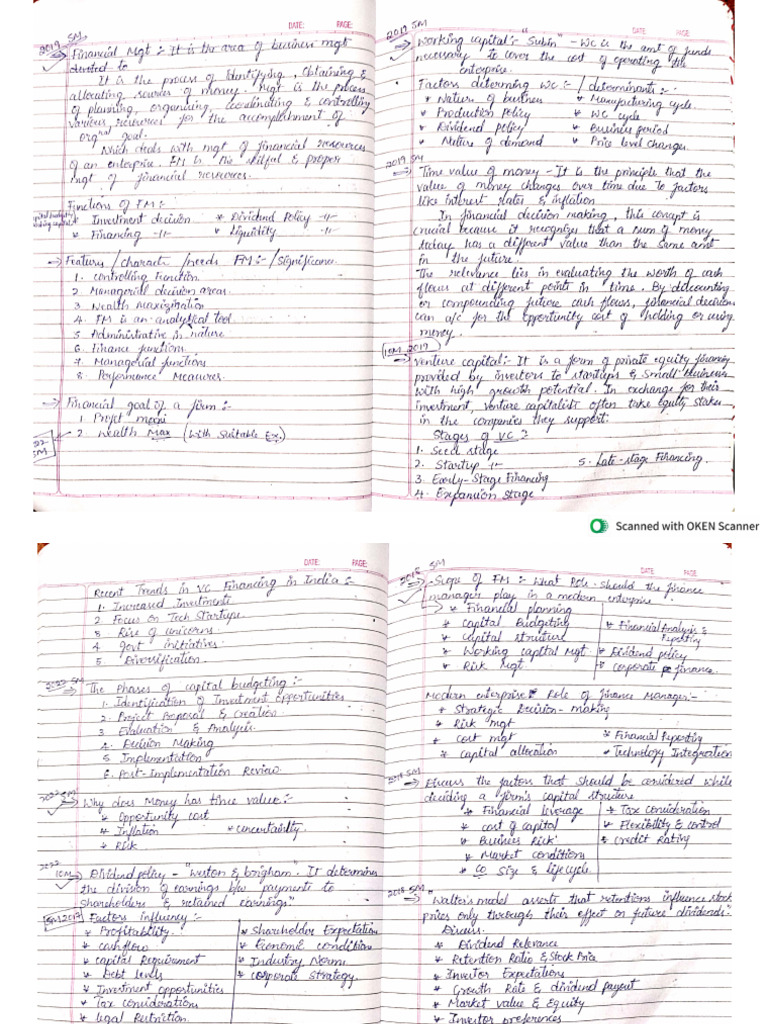 DATE: PAGE:
2019 5M
Financial Mgt :- It is the area of business mgt
devoted to
It is the process of Identifying, Obtaining &
allocating sources of money. Mgt is the process
of planning, organising, coordinating & controlling
various resources for the accomplishment of
orgnal goal.
Which deals with mgt of financial resources
of an enterprise. FM is the skilful & proper
mgt of financial resources.
Functions of FM :-
* Investment decision * Dividend Policy -11-
* Financing -11- * Liquidity -11-
→ Features / charact / needs FM :- / Significance.
1. Controlling Function.
2. Managerial decision areas.
3. Wealth Maximization
4. FM is an analytical tool
5. Administrative in nature
6. Finance functions
7. Managerial functions
8. Performance Measures.
→ Financial goal of a firm :-
1. Profit maxi
2. Wealth Max (With Suitable Ex.)
5M
DATE PAGE
2019 5M
Working capital :- "Subin" - WC is the amt of funds
necessary to cover the cost of operating the
enterprise.
Factors determing WC :- / determinants :-
* Nature of business * Manufacturing cycle.
* Production policy * WC cycle
* Dividend policy * Business period
* Nature of demand * Price level changes.
2019 5M
Time value of money - It is the principle that the
value of money changes over time due to factors
like interest rates & inflation
In financial decision making, this concept is
crucial because it recognizes that a sum of money
today has a different value than the same amt
in the future.
The relevance lies in evaluating the worth of cash
flows at different points in time. By discounting
or compounding future cash flows, financial decision
can a/c for the opportunity cost of holding or using
money.
10M 2019
Venture capital :- It is a form of private equity financing
provided by investors to startups & Small business
with high growth potential. In exchange for their
investment, venture capitalists often take equity stakes
in the companies they support.
Stages of VC :-
1. Seed stage
2. Startup -11-
3. Early-Stage Financing
4. Expansion Stage
5. Late-stage Financing.
Scanned with OKEN Scanner
DATE: PAGE:
Recent Trends in VC Financing in India :-
1. Increased Investments
2 Focus on Tech Startups
3 Rise of unicorns
4 Govt initiatives
5. Diversification.
2022 5M
The Phases of capital budgeting :-
1. Identification of Investment Opportunities
2. Project Proposal & Creation
3 Evaluation & Analysis.
4. Decision Making
5 Implementation
6. Post-Implementation Review.
2022 5M
Why does Money has time value :-
* Opportunity cost
* Inflation * uncertainity.
* Risk
2022
10M
Dividend policy - "Weston & brigham". It determines
the division of earnings b/w payments to
shareholders & retained earnings."
5M 2017
Factors influency :-
* Profitability. * Shareholder Expectation
* cashflow * Economic condition
* Capital Requirement * Industry Norms
* Debt levels * Corporate Strategy.
* Investment opportunities
* Tax considerations
* legal Restriction.
DATE PAGE
2018 5M
Scope of FM :- What Role Should the finance
manager play in a modern enterprise.
* Financial planning
* Capital Budgeting * Financial Analysis &
Reporting
* Capital structure
* Working capital Mgt. * Dividend policy
* Risk Mgt * Corporate finance.
Modern enterprise Role of Finance Manager :-
* Strategic Decision-making
* Risk mgt
* Cost mgt * Financial Reporting
* Capital allocation * Technology Integration
2018 5M
Discuss the factors that should be considered while
deciding a firm's capital structure
* Financial leverage * Tax Consideration
* cost of capital * Flexibility & control
* Business Risk * Credit Rating
* Market conditions
* Co Size & lifecycle
2018 5M
Walter's model asserts that retentions influence stock
price only through their effect on future dividends.
Discuss.
* Dividend Relevance
* Retention Ratio & Stock Price
* Investor Expectations
* Growth Rate & dividend payout
* Market value & Equity
* Investor preferences